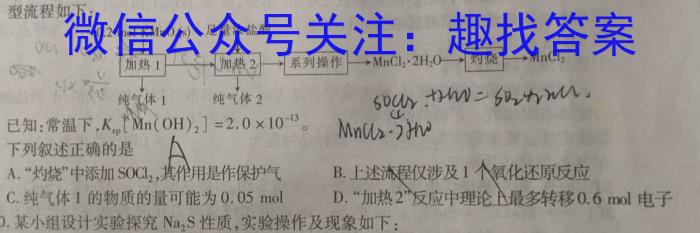 型流程如下:
微信公众号关注：趣找答案
加热1 加热2 系列操作 MnCl₂·2H₂O 灼烧 MnCl₂
纯气体1 纯气体2
SOCl₂
已知:常温下,Ksp[Mn(OH)₂]=2.0×10⁻¹³。
MnCl₂·2H₂O
下列叙述正确的是
A
A.“灼烧”中添加SOCl₂,其作用是作保护气 B.上述流程仅涉及1个氧化还原反应
C.纯气体1的物质的量可能为0.05 mol D.“加热2”反应中理论上最多转移0.6 mol电子
0.某小组设计实验探究Na₂S性质,实验操作及现象如下: